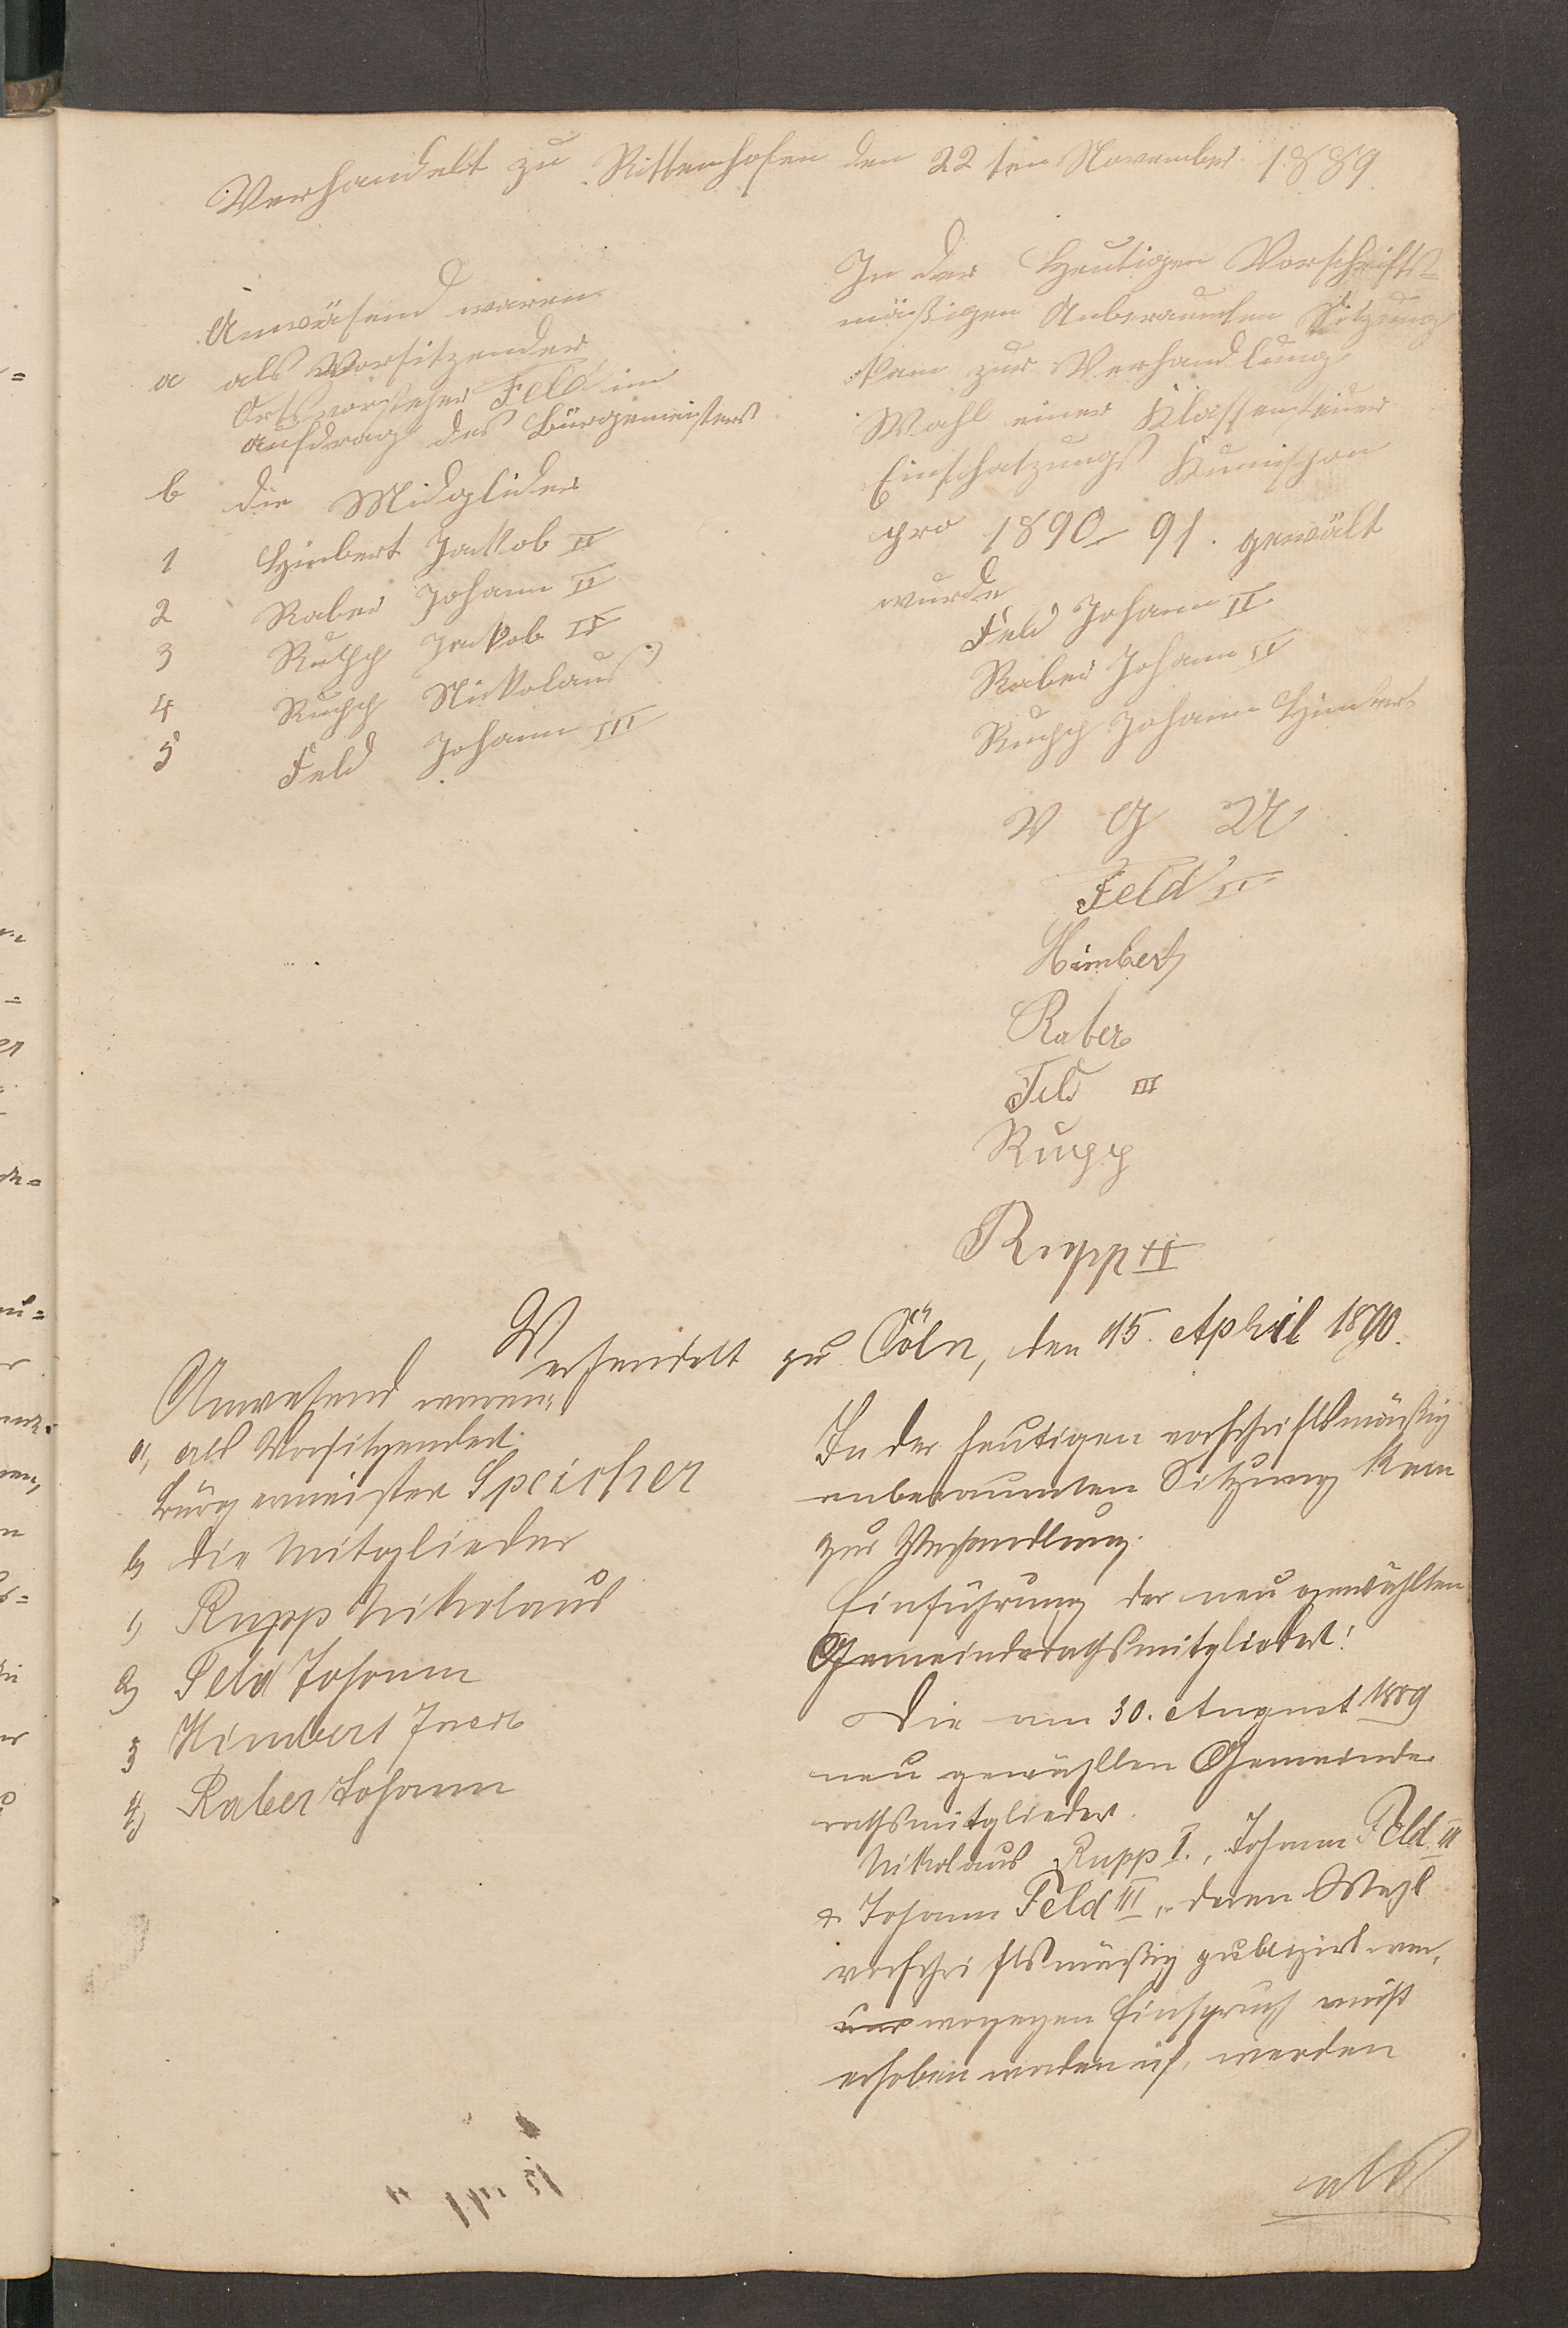 Verhandelt zu Rittenhofen den 22 ten November 1889
Anwäsend waren
a als Vorsitzender
Ortsvorsteher Feld im
aufdrag des Bürgemeisters
b die Midglider
1 Himbert Jackob II
2 Raber Johann II
3 Rupp Jackob II
4 Rupp Nickolaus
5 Feld Johann III
In der Heutigen Vorschrifts-
mäßigen Anberaumten Sitzung
kam zur Verhandlung
Wahl einer Klassensteuer
Einschatzungs Kumission
pro 1890-91. gewält
wurde
Feld Johann II
Raber Johann II
Rupp Johann Himbert
V G U
Feld II
Himbert
Raber
Feld III
Rupp
Rupp II
Verhandelt zu Cöln, den 15. April 1890.
Anwesend waren:
a, als Vorsitzender:
Bürgermeister Speicher
b, die Mitglieder
1, Rupp Nikolaus
2, Feld Johann
3 Himbert Jacob
4, Raber Johann
In der heutigen vorschriftsmäßig
anberaumten Sitzung kam
zur Verhandlung:
Einführung der neu gewählten
Gemeinderathsmitglieder!
Die am 30. August 1889
neu gewählten Gemeinde
rathsmitglieder
Nikolaus Rupp I., Johann Feld II
& Johann Feld III, deren Wahl
vorschriftsmäßig publizirt war,
und wogegen Einspruch nicht
erhoben worden ist, werden
als